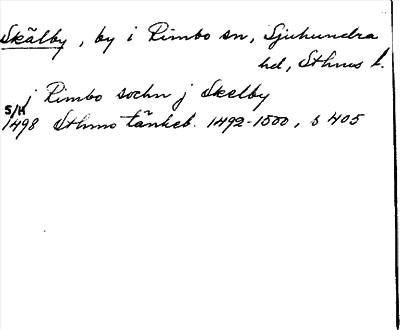 Skälby, by i Rimbo sn, Sjuhundra
hd, Sthms l.
j Rimbo sochn j Skelby
5/11
1498 Sthms tänkeb. 1492-1500, s 405